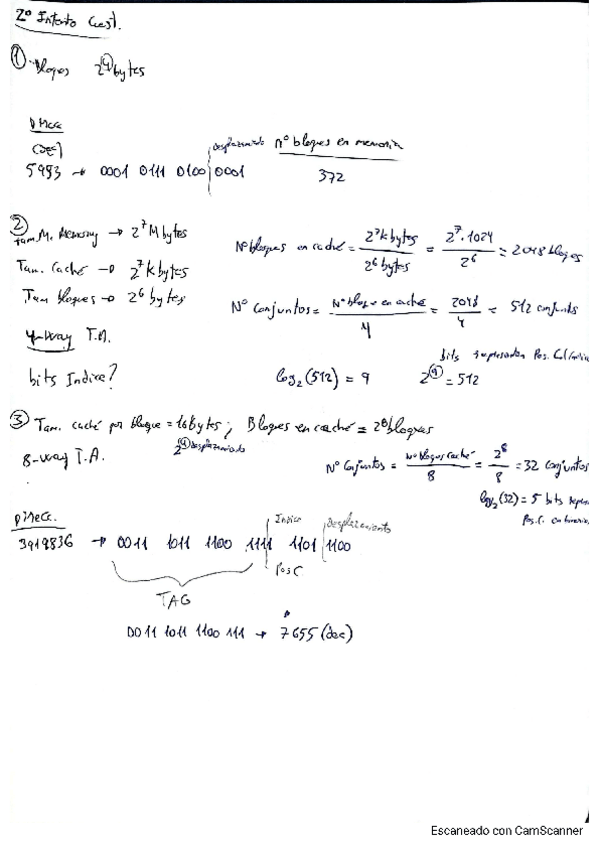 2º Intento Cuest.
① Bloques 2⁴ bytes
D Mece
(DEC)
5953 → 0001 0111 0100 0001
Desplazamiento
Nº bloques en memoria
372
② Tam. M. Memory → 2⁷ Mbytes
Tam. Caché → 2⁷ kbytes
Tam bloques → 2⁶ bytes
4-way T.A.
bits Indice?
Nº bloques en caché = 2⁷ kbytes / 2⁶ bytes = 2⁷ · 1024 / 2⁶ = 2048 bloques
Nº Conjuntos = Nº bloque en caché / 4 = 2048 / 4 = 512 conjunts
bits representan Pos. C
log₂(512) = 9 2⁹ = 512
③ Tam. caché por bloque = 16 Bytes; Bloques en caché = 2⁸ bloques
2⁴ Desplazamiento
8-way T.A.
Nº Conjuntos = Nº bloques caché / 8 = 2⁸ / 8 = 32 conjuntos
log₂(32) = 5 bits
Pos. C. en
D Mece.
3919836 → 0011 1011 1100 1111 1101 1100
Indice
Desplazamiento
Pos C
TAG
0011 1011 1100 111 → 7655 (dec)
Escaneado con CamScanner